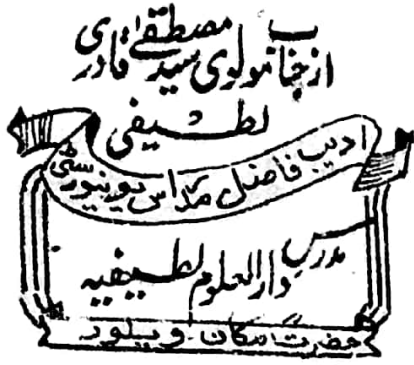 از جناب مولوی سید مصطفیٰ قادری
لطیفی
ادیب فاضل مدراس یونیورسٹی
مدرس دارالعلوم لطیفیہ
حضرت مکان ویلور